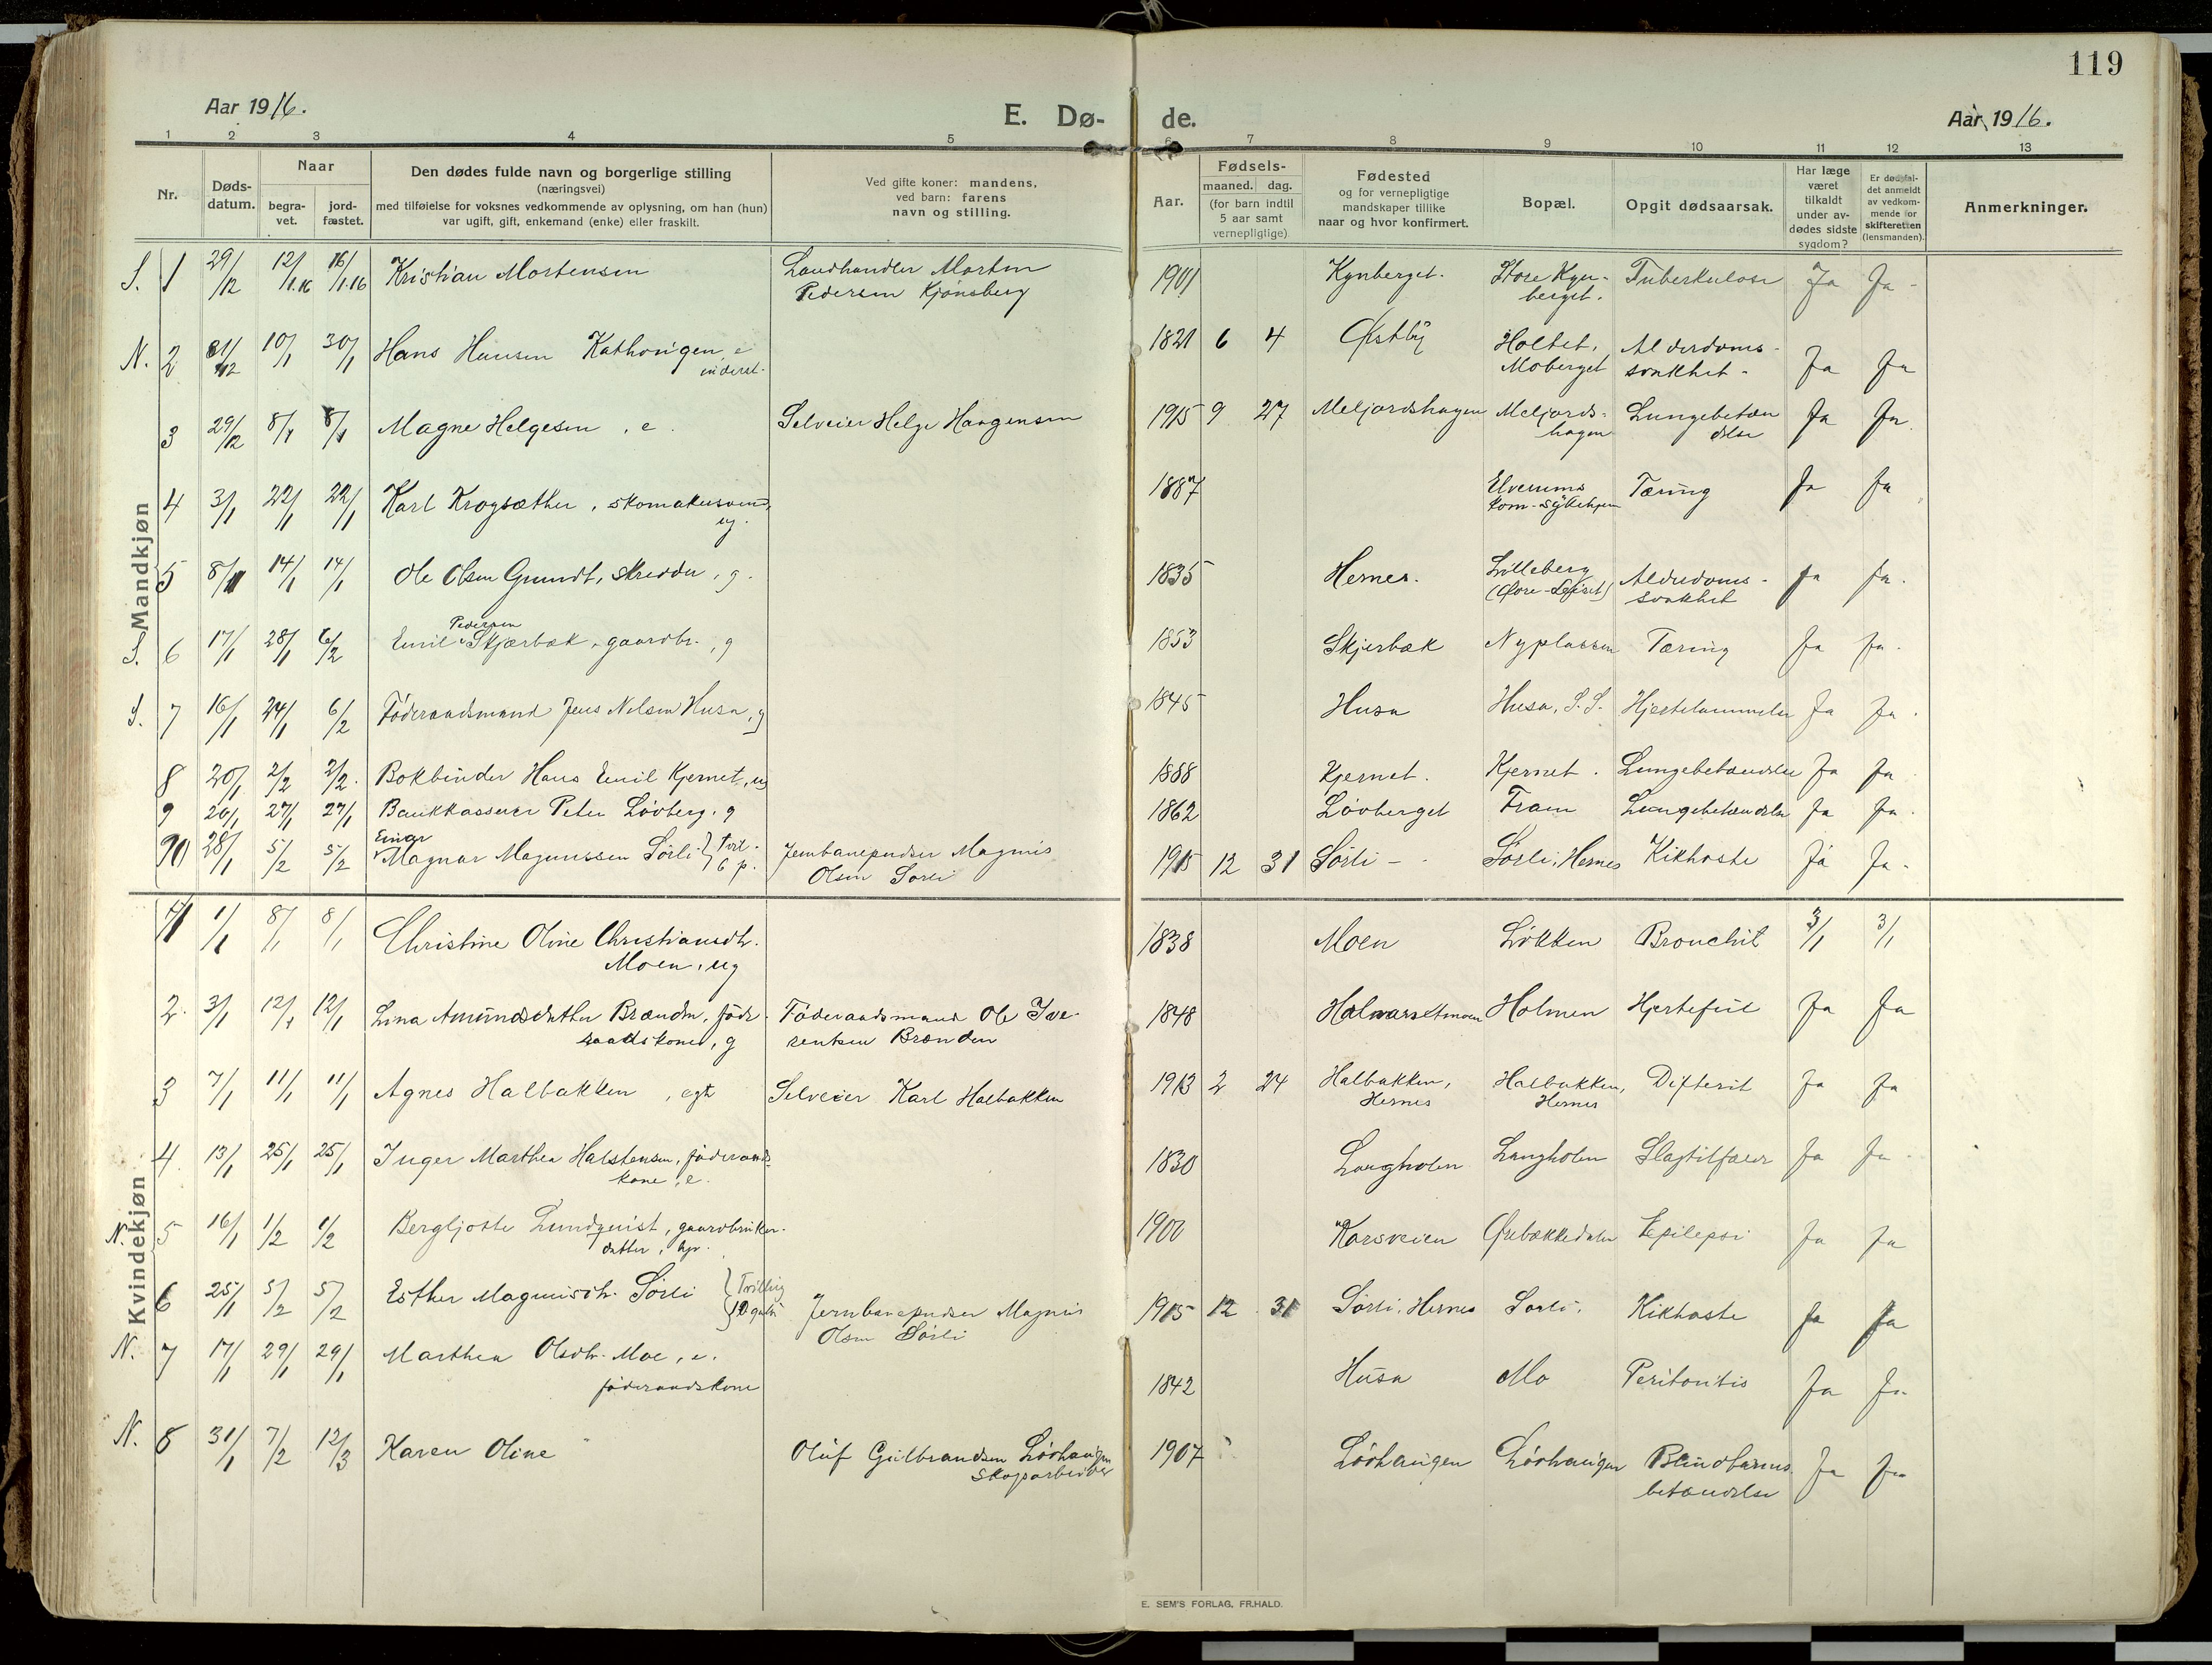 119
Aar 1916.
E. Dø-
de.
Aar 1916.
1 2 3 4 5 6 7 8 9 10 11 12 13
Nr.
Døds-
datum.
Naar
begra-
vet.
jord-
fæstet.
Den dødes fulde navn og borgerlige stilling
(næringsvei)
med tilføielse for voksnes vedkommende av oplysning, om han (hun)
var ugift, gift, enkemand (enke) eller fraskilt.
Ved gifte koner: mandens,
ved barn: farens
navn og stilling.
Aar.
Fødsels-
maaned. dag.
(for barn indtil
5 aar samt
vernepligtige)
Fødested
og for vernepligtige
mandskaper tillike
naar og hvor konfirmert.
Bopæl.
Opgit dødsaarsak.
Har læge
været
tilkaldt
under av-
dødes sidste
sygdom?
Er dødsfal-
det anmeldt
av vedkom-
mende for
skifteretten
(lensmanden).
Anmerkninger.
Mandkjøn
S. 1 29/12 12/1.16 16/1.16 Kristian Mortensen Landhandler Morten 1901 Kynberget. Store Kyn- Tuberkulose Ja Ja
Pedersen Kjønsberg berget.
N. 2 31/12 10/1 30/1 Hans Hansen e 1821 6 4 Østby Holtet, Alderdoms-
inderst. Moberget svakhet. Ja Ja
3 29/12 8/1 8/1 Magne Helgesen, e. Selveier Helge Haagensen 1915 9 27 Meljordshagen Meljords- Lungebetæn Ja Ja
hagen delse
4 3/1 22/1 22/1 Karl Krogsæther, skomakersvend, 1887 Elverums Tæring Ja Ja
ug. kom. sykehjem
5 8/1 14/1 14/1 Ole Olsen Grundt, skrædder, g. 1835 Hernes. Lilleberg Alderdoms- Ja Ja.
svakhet
Pedersen
S. 6 17/1 28/1 6/2 Emil Skjærbæk, gaardbr., g 1853 Skjerbæk Nyplassen Tæring Ja Ja.
S. 7 16/1 24/1 6/2 Føderaadsmand Jens Nilsen Husa, g 1845 Husa Husa, S.S. Hjertelammelse Ja Ja.
8 20/1 2/2 2/2. Bokbinder Hans Emil Kjernet, ug 1888 Kjernet. Kjernet. Lungebetændelse Ja Ja
9 20/1 27/1 27/1 Bankkasserer Peter Løvberg, g 1862 Løvberget Fram Lungebetændelse Ja Ja.
Einar
10 28/1 5/2 5/2 Magnar Magnussen Sørli Tvil. Jernbanepudser Magnus 1915 12 31 Sørli Sørli, Hernes Kikhoste Ja Ja.
6 p. Olsen Sørli
Kvindekjøn
1 1/1 8/1 8/1 Christine Oline Christiansdtr. 1838 Moen Løkken Bronchit 3/1 3/1
Moen, ug
2. 3/1 12/1 12/1 Lina Amundsdatter Brænden, føde- Føderaadsmand Ole Ive- 1848 Holmen Hjertefeil Ja Ja
raadskone, g rentsen Brænden
3 7/1 11/1 11/1 Agnes Halbakken, egt Selveier Karl Halbakken 1913 2 24 Halbakken, Halbakken, Difterit Ja Ja
Hernes Hernes
4. 13/1 25/1 25/1 Inger Marthea Halstensen, føderaads- 1830 Langholen Langholen Slagtilfælde Ja Ja
kone, e.
N. 5 16/1 1/2 1/2 Bergljotte Lundquist, gaardbruker- 1900 Korsveien Ørebækkedalen Epilepsi Ja Ja
datter,
6 25/1 5/2 5/2 Esther Magnusdtr. Sørli Tvilling Jernbanepudser Magnus 1915 12 31 Sørli, Hernes Sørli, Kikhoste Ja Ja
Olsen Sørli
N. 7 17/1 29/1 29/1 Marthea Olsdtr. Moe, e. 1842 Husa Mo Peritonitis Ja Ja
føderaadskone
N. 8 31/1 7/2 12/3 Karen Oline Oluf Gulbrandsen Løvhaugen 1907 Løvhaugen Løvhaugen Blindtarms- Ja Ja
skogsarbeider betændelse
E. SEM'S FORLAG, FR.HALD.